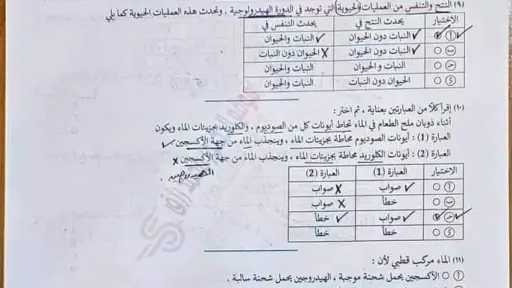 (٩) النتح والتنفس من العمليات الحيوية التي توجد في الدورة الهيدرولوجية ، وتحدث هذه العمليات الحيوية كما يلي
الاختيار	يحدث النتح في	يحدث التنفس في
أ	النبات دون الحيوان ✓	النبات والحيوان ✓
ب	النبات دون الحيوان ✓	الحيوان دون النبات ✗
ج	النبات و الحيوان	النبات والحيوان
د	الحيوان دون النبات	النبات والحيوان
(١٠) إقرأ كلاً من العبارتين بعناية ، ثم اختر :
أثناء ذوبان ملح الطعام في الماء تحاط أيونات كل من الصوديوم ، والكلوريد بجزيئات الماء ويكون
العبارة (1) : أيونات الصوديوم محاطة بجزيئات الماء ، وينجذب الماء من جهة الأكسجين ✓
العبارة (2) : أيونات الكلوريد محاطة بجزيئات الماء ، وينجذب الماء من جهة الأكسجين ✗
الهيدروجين
الاختيار	العبارة (1)	العبارة (2)
أ	صواب ✓	صواب ✗
ب	خطأ	صواب ✗
ج	صواب ✓	خطأ ✓
د	خطأ	خطأ
(١١) الماء مركب قطبي لأن :
أ	الأكسجين يحمل شحنة موجبة ، الهيدروجين يحمل شحنة سالبة .